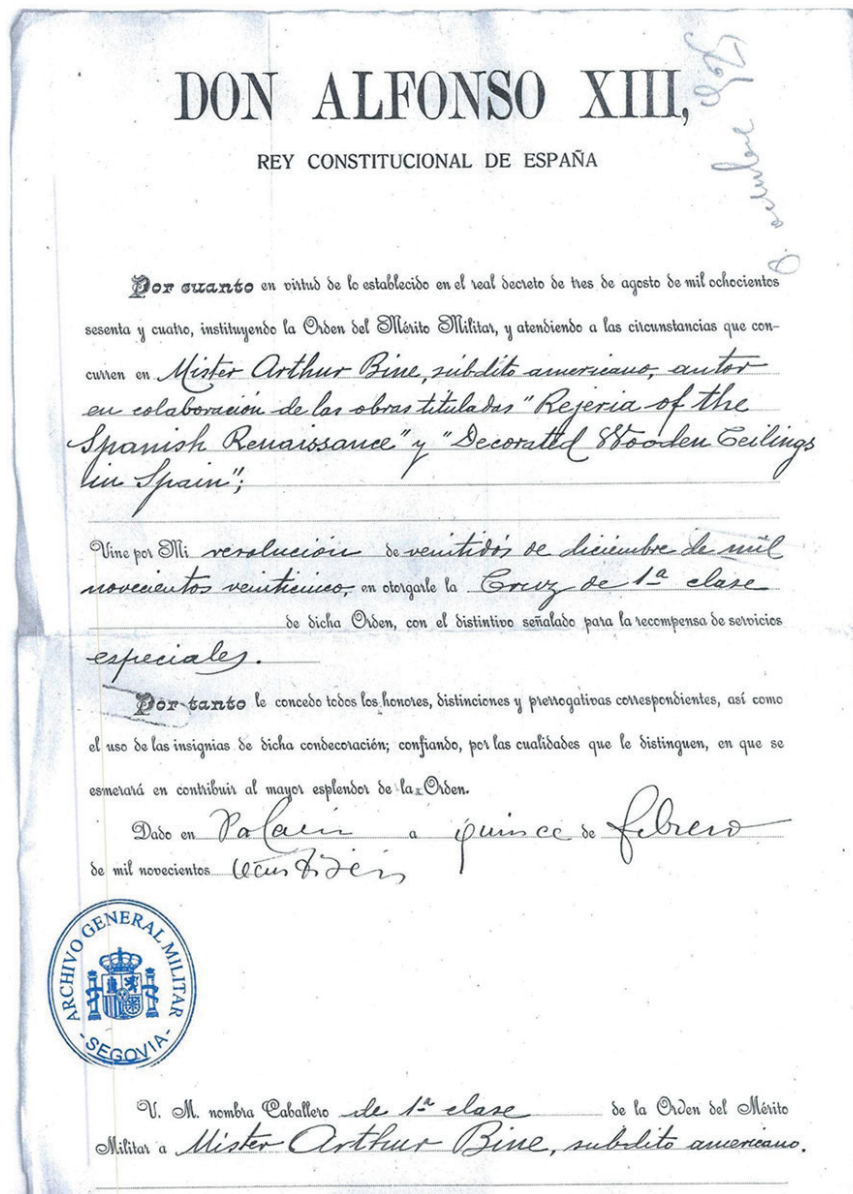 DON ALFONSO XIII,
REY CONSTITUCIONAL DE ESPAÑA
8. octubre 925
Por cuanto en virtud de lo establecido en el real decreto de tres de agosto de mil ochocientos
sesenta y cuatro, instituyendo la Orden del Mérito Militar, y atendiendo a las circunstancias que con-
curren en Mister Arthur Bine, súbdito americano, autor
en colaboración de las obras tituladas "Rejeria of the
Spanish Renaissance" y "Decorated Wooden Ceilings
in Spain";
Vine por Mi resolución de veintidós de diciembre de mil
novecientos veinticinco, en otorgarle la Cruz de 1ª clase
de dicha Orden, con el distintivo señalado para la recompensa de servicios
especiales.
Por tanto le concedo todos los honores, distinciones y prerrogativas correspondientes, así como
el uso de las insignias de dicha condecoración; confiando, por las cualidades que le distinguen, en que se
esmerará en contribuir al mayor esplendor de la Orden.
Dado en Palacio a quince de febrero
de mil novecientos veintiséis
ARCHIVO GENERAL MILITAR
- SEGOVIA -
V. M. nombra Caballero de 1ª clase de la Orden del Mérito
Militar a Mister Arthur Bine, subdito americano.